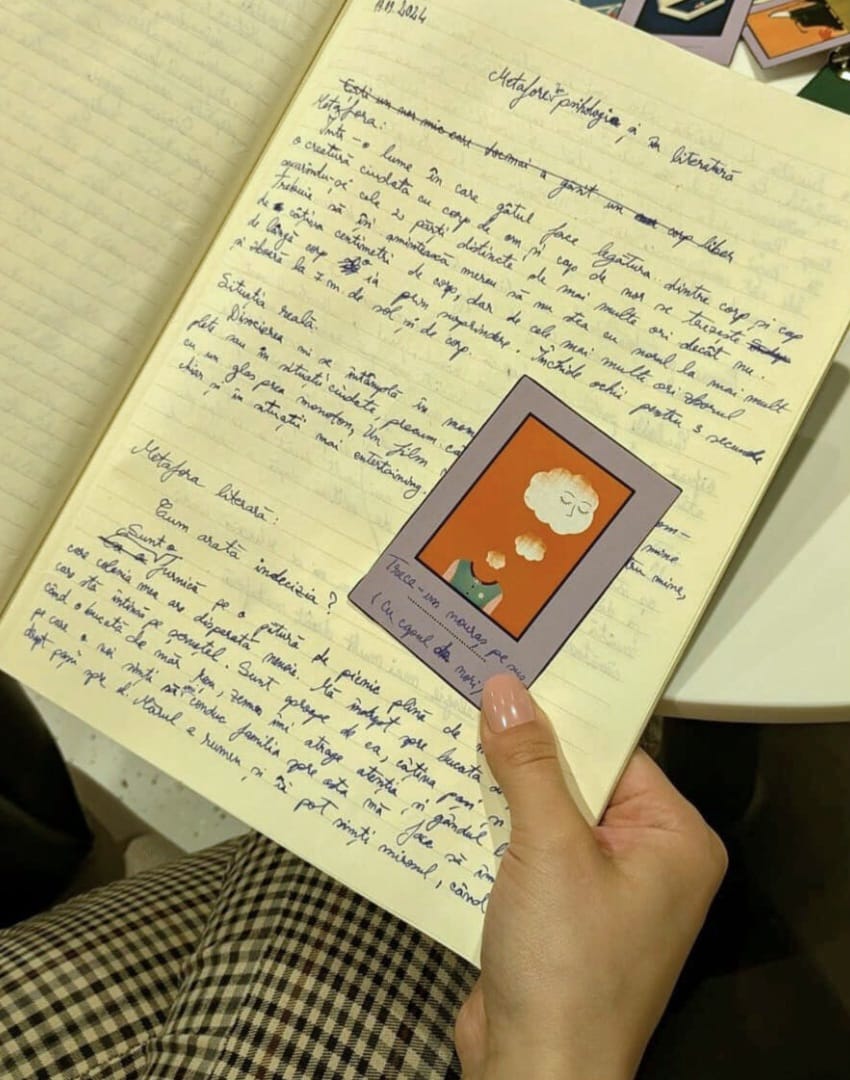 11.09.2024
Metafore în psihologie și în literatură
Ești un nor mic care tocmai a găsit un corp liber
Metafora:
Într-o lume în care gâtul face legătura dintre corp și cap
o creatură ciudată cu corp de om și cap de nor se trezește
cele 2 părți distincte de mai multe ori decât nu.
Trebuie să își amintească mereu să nu stea cu norul la mai mult
de câțiva centimetri de corp, dar de cele mai multe ori zborul
de lângă corp îo ia prin surprindere. Închide ochii pentru 3 secunde
și zboară la 7 m de sol și de corp.
Situația reală:
Disocierea mi se întâmplă în mom
plete sau în situații ciudate, precum
cu un glas prea monoton. Un film
chiar și în situații mai entertaining.
om-
mine
tru mine,
Metafora literară:
Cum arată indecizia?
Sunt o furnică pe o pătură de picnic plină de
care colonia mea are disperată nevoie. Mă îndrept spre bucata
care stă întinsă pe șervețel. Sunt aproape de ea, câțiva pași,
când o bucată de măr îmi atrage atenția și gândul
pe care o voi simți să conduc familia spre asta mă face să
drept pașii spre el. Mărul e rumen și îi pot simți mirosul, când
Trece-un nouraș pe sus
(Cu capul în nori)